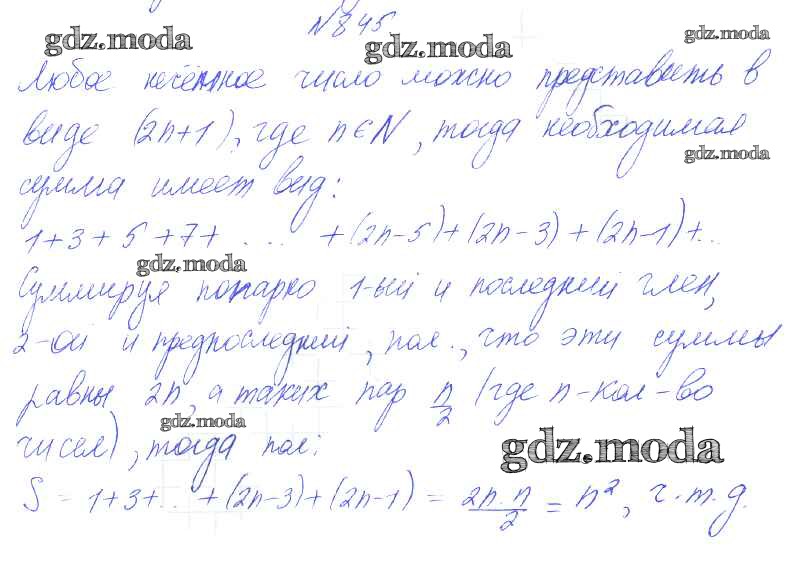 № 845
gdz.moda gdz.moda gdz.moda
Любое нечётное число можно представить в
виде (2n+1), где n∈N, тогда необходимая
gdz.moda
сумма имеет вид:
1+3+5+7+ .... +(2n-5)+(2n-3)+(2n-1)+..
gdz.moda
Суммируя попарно 1-ый и последний член,
2-ой и предпоследний, пол., что эти суммы
равны 2n, а таких пар n/2 (где n-кол-во
gdz.moda
чисел), тогда пол:
gdz.moda
S = 1+3+... +(2n-3)+(2n-1) = 2n·n/2 = n², ч.т.д.